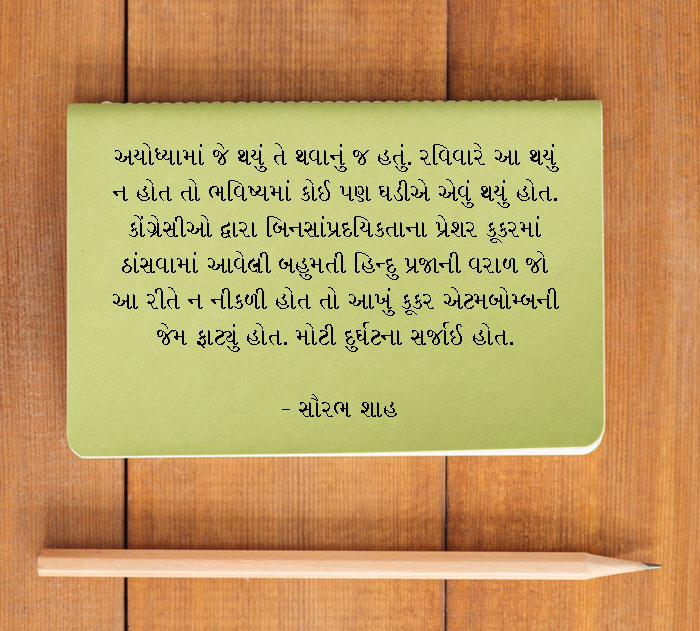 અયોધ્યામાં જે થયું તે થવાનું જ હતું. રવિવારે આ થયું
ન હોત તો ભવિષ્યમાં કોઈ પણ ઘડીએ એવું થયું હોત.
કોંગ્રેસીઓ દ્વારા બિનસાંપ્રદયિકતાના પ્રેશર કૂકરમાં
ઠાંસવામાં આવેલી બહુમતી હિન્દુ પ્રજાની વરાળ જો
આ રીતે ન નીકળી હોત તો આખું કૂકર એટમબોમ્બની
જેમ ફાટ્યું હોત. મોટી દુર્ઘટના સર્જાઈ હોત.
- સૌરભ શાહ